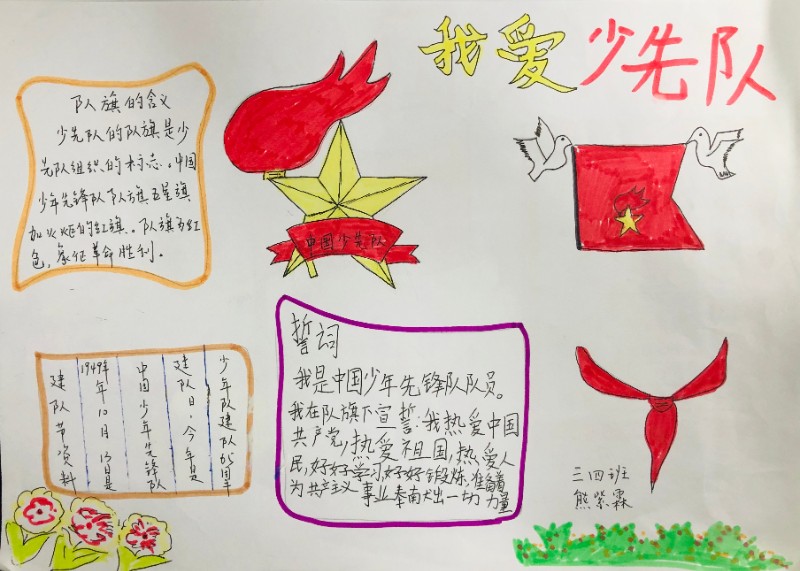 我爱少先队
队旗的含义
少先队的队旗是少
先队组织的标志。中国
少年先锋队队旗五星旗
加火炬的红旗。队旗为红
色，象征革命胜利。
中国少先队
誓词
我是中国少年先锋队队员。
我在队旗下宣誓：我热爱中国
共产党，热爱祖国，热爱人
民，好好学习，好好锻炼，准备着
为共产主义事业奉南犬出一切力量
少年队建队65周年
建队日，今年是
中国少年先锋队
1949年10月13日是
建队节资料
三四班
熊紫霖